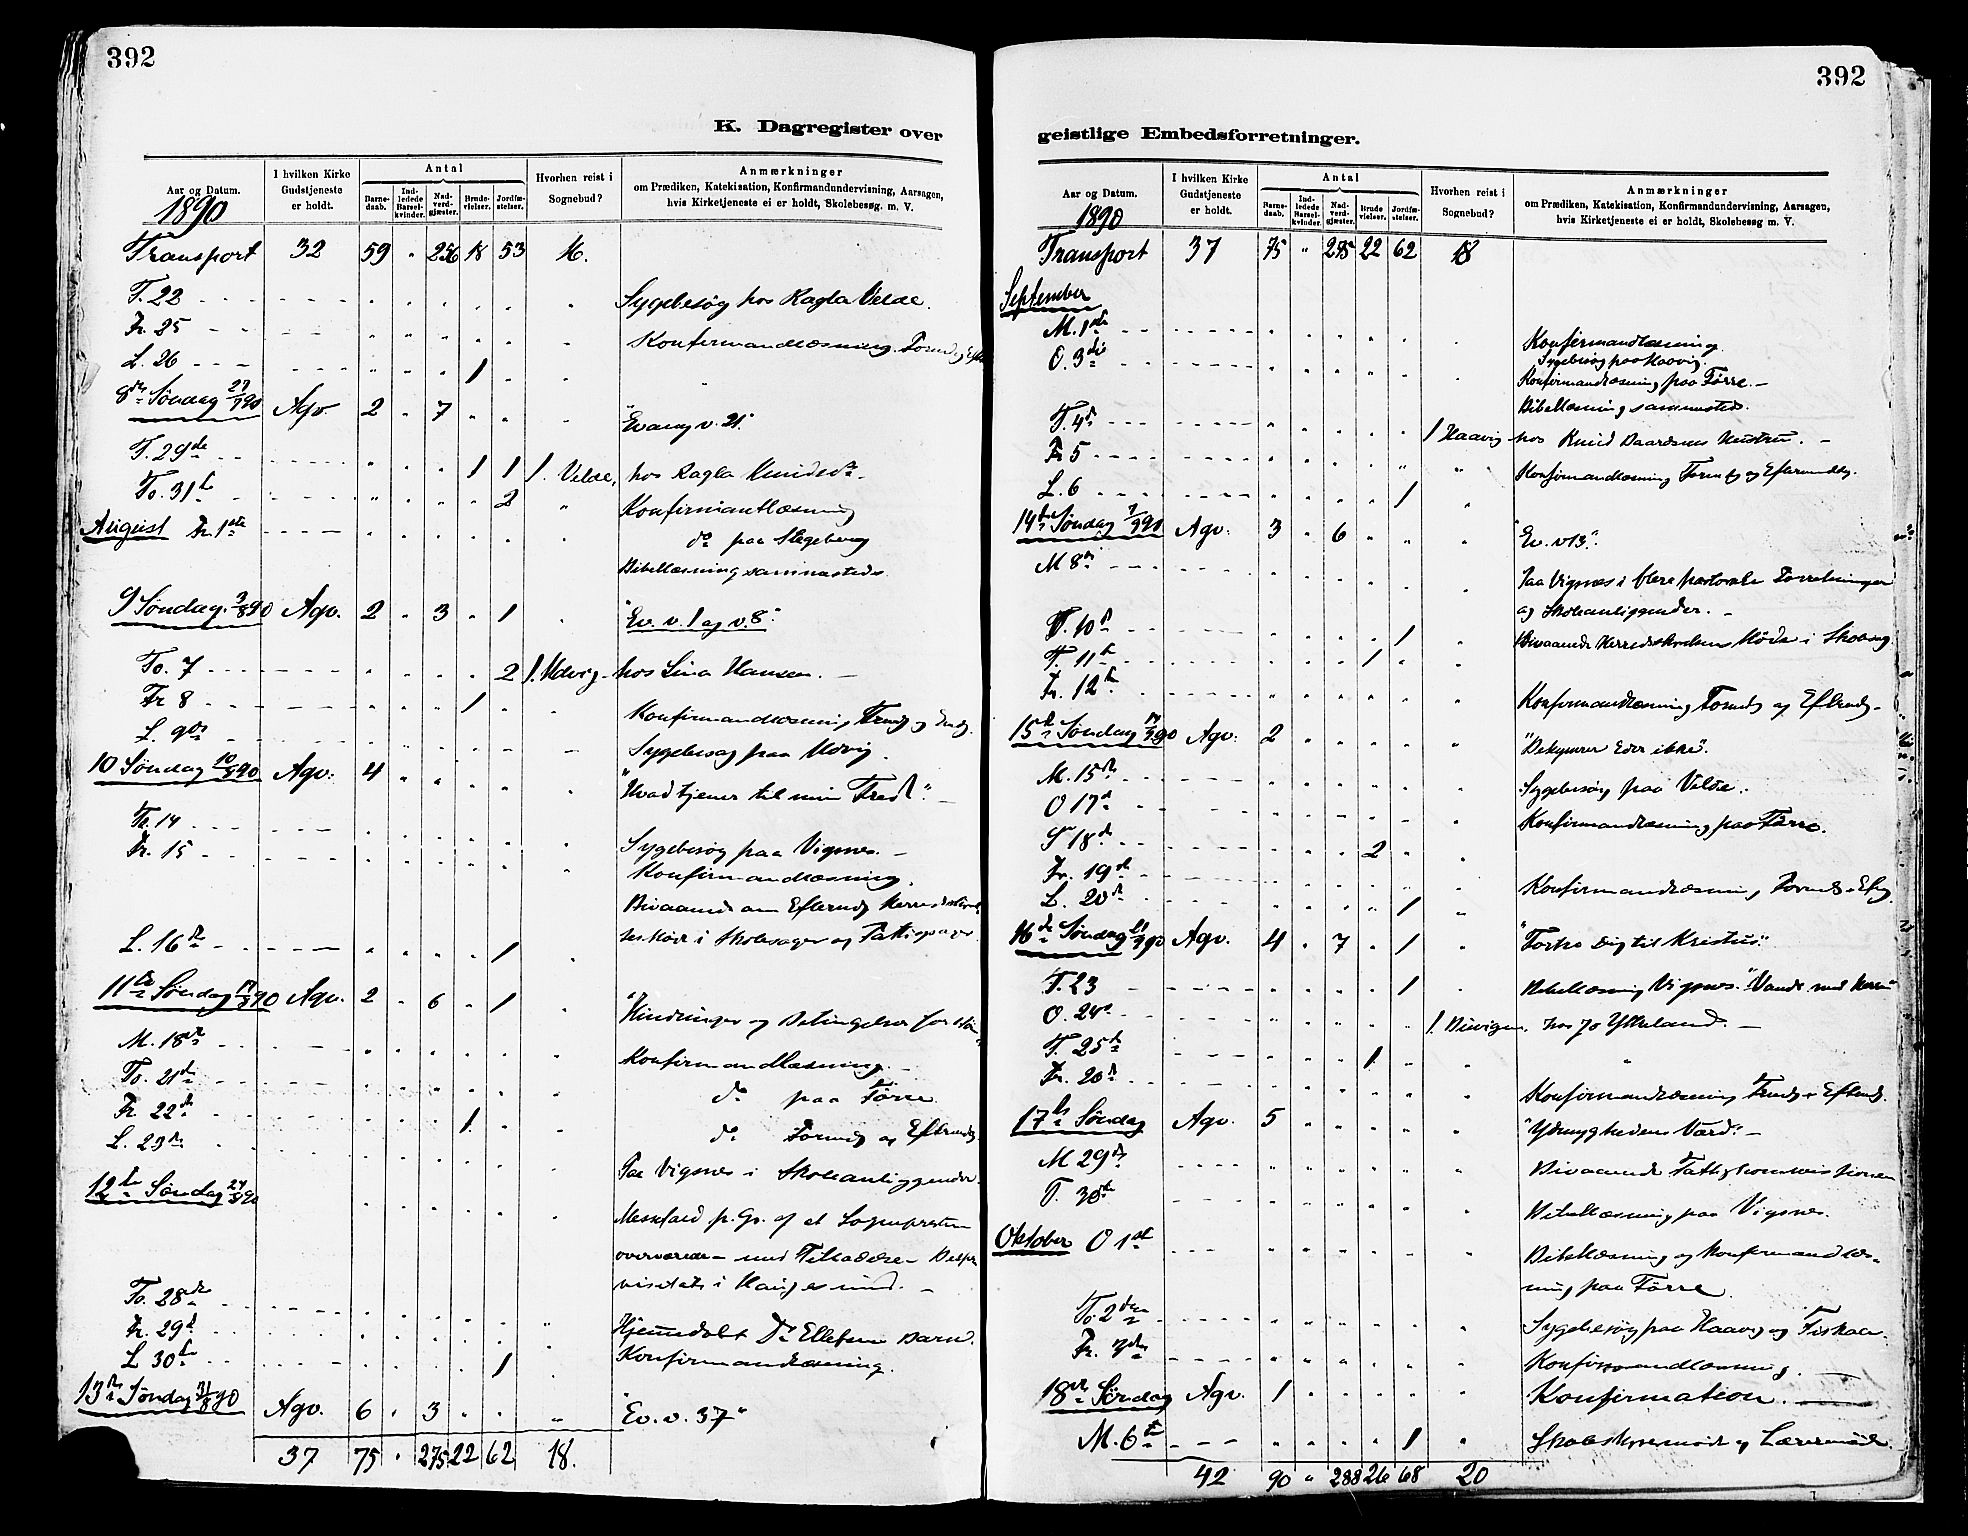 392
K. Dagregister over
Aar og Datum. 1890
I hvilken Kirke Gudstjeneste er holdt.
Antal
Barnedaab.
Indledede Barselkvinder.
Nadverdgjæster.
Brudevielser.
Jordfæstelser.
Hvorhen reist i Sognebud?
Anmærkninger
om Prædiken, Katekisation, Konfirmandundervisning, Aarsagen,
hvis Kirketjeneste ei er holdt, Skolebesøg m. V.
Transport 32 59 " 256 18 53 16.
T. 22 Sygebesøg hos Ragla Velde.
Fr. 25 Konfirmandlæsning Formd og Eft
L. 26 1
8de Søndag 27/7 90 Agv 2 " 7 "Evang v. 21"
T. 29de 1 1 1. Velde, hos Ragla Knudsdr.
To. 31te 2 Konfirmantlæsning
August Fr. 1ste do paa Stegeberg
Bibellæsning sammesteds
9 Søndag 3/8 90 Agv. 2 " 3 " 1 "Ev. v. 1 og v. 8."
To. 7 2 1. Udvig hos Lina Hansen.
Fr 8 1 Konfirmandlæsning
L. 9de Sygebesøg paa Udvig.
10 Søndag 10/8 90 Agv. 4 "Hvad tjener til min Fred".
To. 14 Sygebesøg paa Vigsnes.
Fr. 15 Konfirmandlæsning.
Bivaanede om Eftermd Herredsstyrel
sesmøde i Skolesager og
L. 16de 1
11te Søndag 17/8 90 Agv. 2 " 6 " 1 "Hindringer og Betingelser for
M. 18de Konfirmandlæsning.
To. 21de do paa Førre
Fr. 22de 1. do Formd og Eftermd
L. 23de Paa Vigsnes i Skoleanliggender.
12te Søndag 24/8 90 Messefald p. Gr. af at Sognepresten
overværede med Tilladelse
i Haugesund.
To. 28de
Fr. 29de Hjemmedøbt Barn.
L 30te 1 Konfirmandlæsning.
13de Søndag 31/8 90 Agv. 6 " 3 "Ev. v. 37"
37 75 " 275 22 62 18.
392
geistlige Embedsforretninger.
Aar og Datum. 1890
I hvilken Kirke Gudstjeneste er holdt.
Antal
Barnedaab.
Indledede Barselkvinder.
Nadverdgjæster.
Brudevielser.
Jordfæstelser.
Hvorhen reist i Sognebud?
Anmærkninger
om Prædiken, Katekisation, Konfirmandundervisning, Aarsagen,
hvis Kirketjeneste ei er holdt, Skolebesøg m. V.
Transport 37 75 " 275 22 62 18
September
M. 1ste Konfirmandlæsning
Sygebesøg paa Haavig.
O. 3die Konfirmandlæsning paa Førre.
Bibellæsning sammesteds.
T. 4de 1 Haavig hos Knud Baardsens Hustru.
Fr 5 Konfirmandlæsning Formdg og Eftermiddg.
L. 6 1
14de Søndag 7/9 90 Agv. 3 " 6 "Ev. v 13".
M 8de Paa Vigsnes i flere pastorale Forretninger
og Skoleanliggender.
10de 1 Bivaanede Herredsskolens Møde i
T. 11te 1
Fr. 12te Konfirmandlæsning Formdg og Eftermdg.
15de Søndag 14/9 90 Agv. 2 "Bekymrer Eder ikke".
M. 15de Sygebesøg paa Velde.
O 17de Konfirmandlæsning paa Førre.
T 18de 2
Fr. 19de Konfirmandlæsning Formdg &
L. 20de 1
16de Søndag 21/9 90 Agv. 4 " 7 " 1
T. 23 1 Bibellæsning Vigsnes.
O. 24de 1. hos Jo Ytreland.
T. 25te 1
Fr. 26de Konfirmandlæsning Formdg & Eftermdg.
17de Søndag Agv. 5 "Ydmyghedens Værd".
M 29de Bivaanede Fattigkommissionen
T. 30te Bibellæsning paa Vigsnes.
Oktober O 1ste Bibellæsning og Konfirmandlæs-
ning paa Førre.
To. 2den Sygebesøg paa Haavig og Fiskaa.
Fr. 3die Konfirmandlæsning.
18de Søndag Agv. 1 Konfirmation.
M. 6te 1 Skolestyremøde og Lærermøde
42 90 " 288 26 68 20